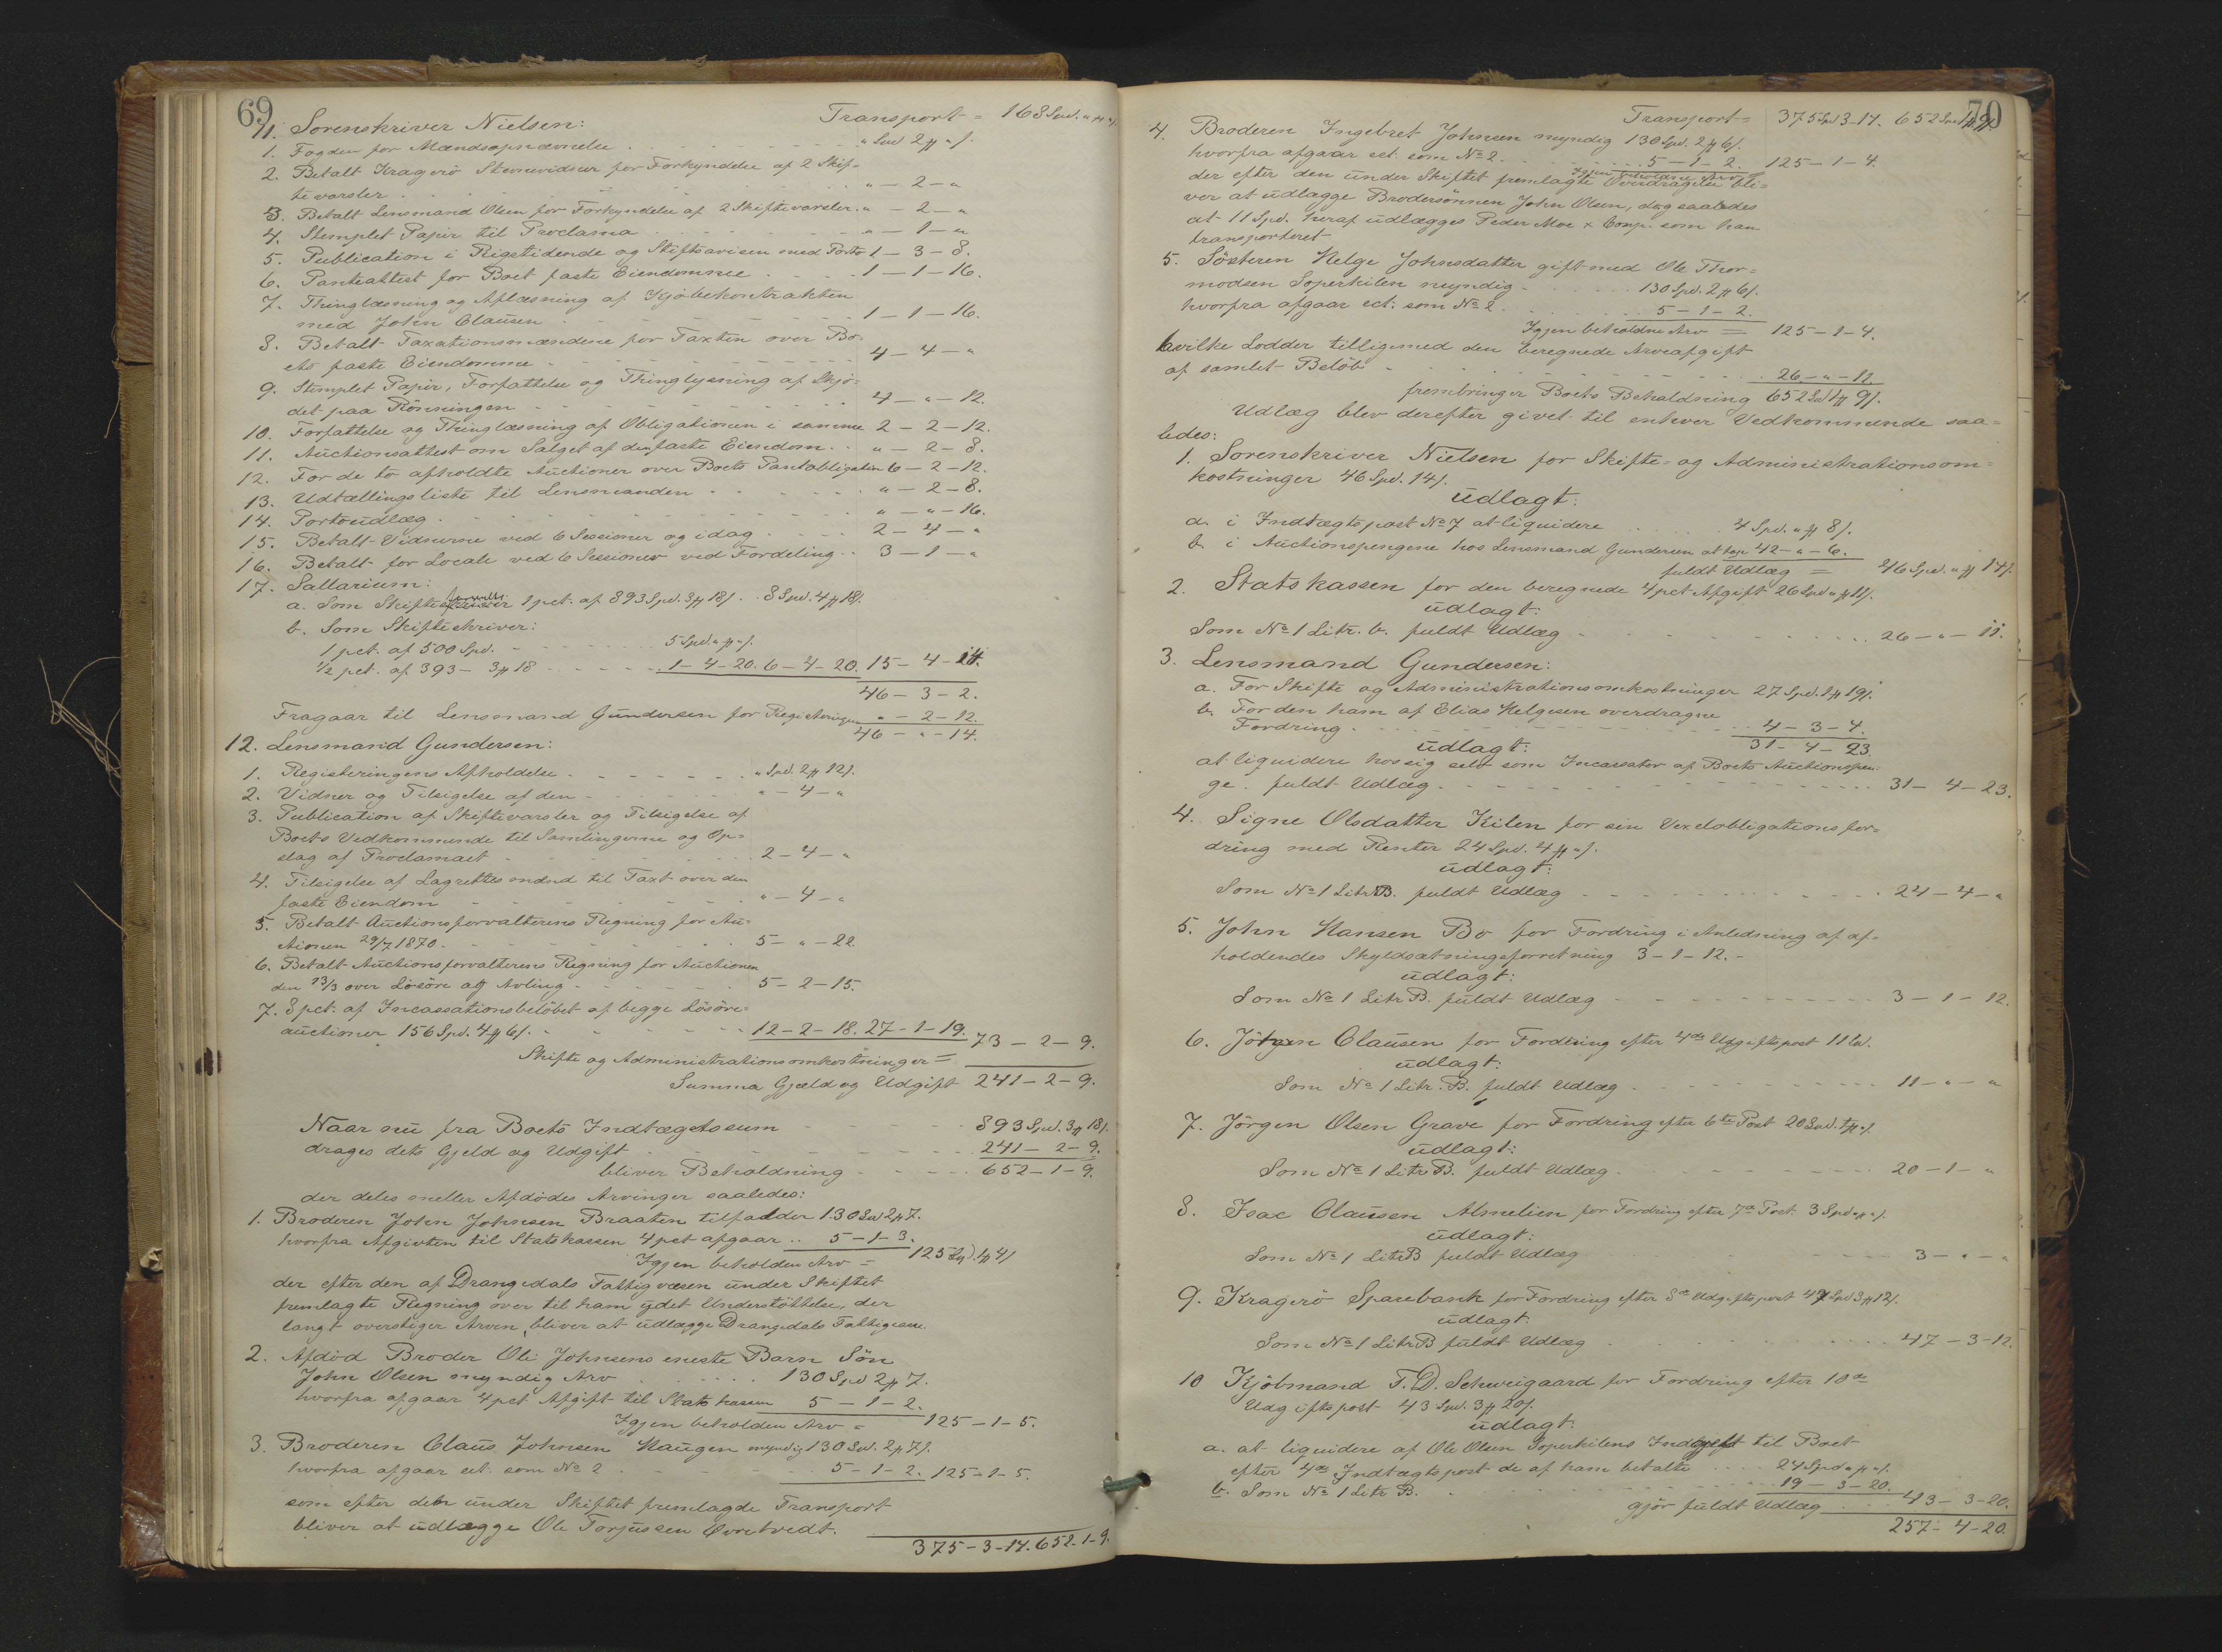 69
Transport = 168 Spd. " # " /.
11. Sorenskriver Nielsen:
1. Fogden for Mændsopnævnelse . . . " Spd 2 # " /.
2. Betalt Kragerö Stevnevidner for Forkyndelse af 2 Skif-
tevarsler . . . " - 2 - "
3. Betalt Lensmand Olsen for Forkyndelse af 2 Skiftevarsler . " - 2 - "
4. Stemplet Papir til Proclama . . . " - 1 - "
5. Publication i Rigstidende og Stiftsavisen med Porto 1 - 3 - 8.
6. Panteattest for Boets faste Eiendomme . . . 1 - 1 - 16.
7. Thinglæsning og Aflæsning af Kjöbekontrakten
med John Clausen . . . 1 - 1 - 16.
8. Betalt Taxationsmændene for Taxten over Bo-
ets faste Eiendomme . . . 4 - 4 - "
9. Stemplet Papir, Forfattelse og Thinglysning af Skjö-
det paa Rönningen . . . 4 - " - 12.
10. Forfattelse og Thinglæsning af Obligationen i samme 2 - 2 - 12.
11. Auctionsattest om Salget af den faste Eiendom . . " - 2 - 8.
12. For de to afholdte Auctioner over Boets Pantobligation 6 - 2 - 12.
13. Udtællingsliste til Lensmanden . . . " - 2 - 8.
14. Portoudlæg . . . " - " - 16.
15. Betalt Vidnerne ved 6 Sessioner og idag . . . 2 - 4 - "
16. Betalt for Locale ved 6 Sessioner ved Fordeling . . 3 - 1 - "
17. Sallarium:
a. Som Skifteforvalter 1 pct. af 893 Spd. 3 # 18 /. . 8 Spd. 4 # 18 /.
b. Som Skifteskriver:
1 pct. af 500 Spd. . . . 5 Spd. " # " /.
1/2 pct. af 393 - 3 # 18 . . . 1 - 4 - 20. 6 - 4 - 20. 15 - 4 - 14.
46 - 3 - 2.
Fragaar til Lensmand Gundersen for Registeringen " - 2 - 12.
46 - " - 14.
12. Lensmand Gundersen:
1. Registeringens Afholdelse . . . " Spd. 2 # 12 /.
2. Vidner og Tilsigelse af den . . . " - 4 - "
3. Publication af Skiftevarsler og Tilsigelse af
Boets Vedkommende til Samlingerne og Op-
slag af Proclamaet . . . 2 - 4 - "
4. Tilsigelse af Lagrettesmænd til Taxt over den
faste Eiendom . . . " - 4 - "
5. Betalt Auctionsforvalterens Regning for Au-
ctionen 29/7 1870 . . . 5 - " - 22
6. Betalt Auctionsforvalterens Regning for Auctionen
den 23/3 over Lösöre og Avling . . . 5 - 2 - 15.
7. 8 pct. af Incassationsbelöbet af begge Lösöre-
auctioner 156 Spd. 4 # 6 /. . . . 12 - 2 - 18. 27 - 1 - 19.
Skifte og Administrationsomkostninger = 73 - 2 - 9.
Summa Gjæld og Udgift 241 - 2 - 9.
Naar nu fra Boets Indtægtssum . . . 893 Spd. 3 # 18 /.
drages dets Gjeld og Udgift . . . 241 - 2 - 9.
bliver Beholdning . . . 652 - 1 - 9.
der deles mellem Afdödes Arvinger saaledes:
1. Broderen John Johnsen Braaten tilfalder 130 Spd 2 # 7.
hvorfra Afgivten til Statskassen 4 pct afgaar . . 5 - 1 - 3.
Igjen beholden Arv = 125 Spd. 1 # 4 /
der efter den af Drangedals Fattigvæsen under Skiftet
fremlagte Regning over til ham ydet Understöttelse, der
langt overstiger Arven, bliver at udlægge Drangedals Fattigcasse.
2. Afdöd Broder Ole Johnsens eneste Barn Sön
John Olsen myndig Arv . . . 130 Spd 2 # 7.
hvorfra afgaar 4 pct Afgift til Statskassen 5 - 1 - 2.
Igjen beholden Arv = 125 - 1 - 5.
3. Broderen Claus Johnsen Haugen myndig 130 Spd. 2 # 7 /.
hvorfra afgaar ect. som No 2 . . . 5 - 1 - 2. 125 - 1 - 5.
som efter den under Skiftet fremlagde Transport
bliver at udlægge Ole Torjussen Evretvedt.
375 - 3 - 14. 652 - 1 - 9.
70
Transport = 375 Spd 3 - 14. 652 Spd 1 # 9 /.
4. Broderen Ingebret Johnsen myndig 130 Spd. 2 # 6 /.
hvorfra afgaar ect. som No 2. . . . 5 - 1 - 2. 125 - 1 - 4.
Igjen beholdne Arv =
der efter den under Skiftet fremlagte Overdragelse bli-
ver at udlægge Brodersönnen John Olsen, dog saaledes
at 11 Spd. heraf udlægges Peder Moe & Comp. som han
transporteret
5. Sösteren Helge Johnsdatter gift med Ole Thor-
modsen Soperkilen myndig . . . 130 Spd. 2 # 6 /.
hvorfra afgaar ect: som No 2 . . . 5 - 1 - 2.
Igjen beholdne Arv = 125 - 1 - 4.
hvilke Lodder tilligemed den beregnede Arveafgift
af samlet Belöb . . . 26 - " - 11.
frembringer Boets Behaldning 652 Spd 1 # 9 /.
Udlæg blev derefter givet til enhver Vedkommende saa-
ledes:
1. Sorenskriver Nielsen for Skifte- og Administrationsom-
kostninger 46 Spd. 14 /.
udlagt:
a. i Indtægtspost No 7 at liquidere . . . 4 Spd. " # 8 /.
b. i Auctionspengene hos Lensmand Gundersen 42 - " - 6.
fuldt Udlæg = 46 Spd. " # 14 /.
2. Statskassen for den beregnede 4 pct Afgift 26 Spd " # 11 /.
udlagt:
Som No 1 Litr. b. fuldt Udlæg . . . 26 - " - 11.
3. Lensmand Gundersen:
a. For Skifte og Administrationsomkostninger 27 Spd. 1 # 19 /.
b. For den ham af Elias Helgesen overdragne
Fordring . . . 4 - 3 - 4.
udlagt: 31 - 4 - 23.
at liquidere hos sig selv som Incassator af Boets Auctionspen-
ge. fuldt Udlæg . . . 31 - 4 - 23.
4. Signe Olsdatter Kilen for sin Vexelobligationsfor-
dring med Renter 24 Spd. 4 # " /.
udlagt:
Som No 1 Litr B. fuldt Udlæg . . . 24 - 4 - "
5. John Hansen Bö for Fordring i Anledning af af-
holdendes Skyldsætningsforretning 3 - 1 - 12. -
udlagt:
Som No 1 Litr B. fuldt Udlæg . . . 3 - 1 - 12.
6. Clausen for Fordring efter 4de Udgiftspost 11 Spd.
udlagt:
Som No 1 Litr. B. fuldt Udlæg . . . 11 - " - "
7. Jörgen Olsen Grave for Fordring efter 6te Post 20 Spd. 1 # " /.
udlagt:
Som No 1 Litr B. fuldt Udlæg . . . 20 - 1 - "
8. Isac Clausen Almelien for Fordring efter 7de Post. 3 Spd " # " /.
udlagt:
Som No 1 Litr B fuldt Udlæg . . . 3 - " - "
9. Kragerö Sparebank for Fordring efter 8de Udgiftspost 47 Spd 3 # 12 /.
udlagt:
Som No 1 Litr B fuldt Udlæg . . . 47 - 3 - 12.
10 Kjöbmand F. D. Schweigaard for Fordring efter 10de
Udgiftspost 43 Spd. 3 # 20 /.
udlagt:
a. at liquidere af Ole Olsen Soperkilens til Boet
efter 4de Indtægtspost de af ham betalte . . . 24 Spd " # " /.
b. Som No 1 Litr B. . . . 19 - 3 - 20.
gjör fuldt Udlæg . . . 43 - 3 - 20.
257 - 4 - 20.